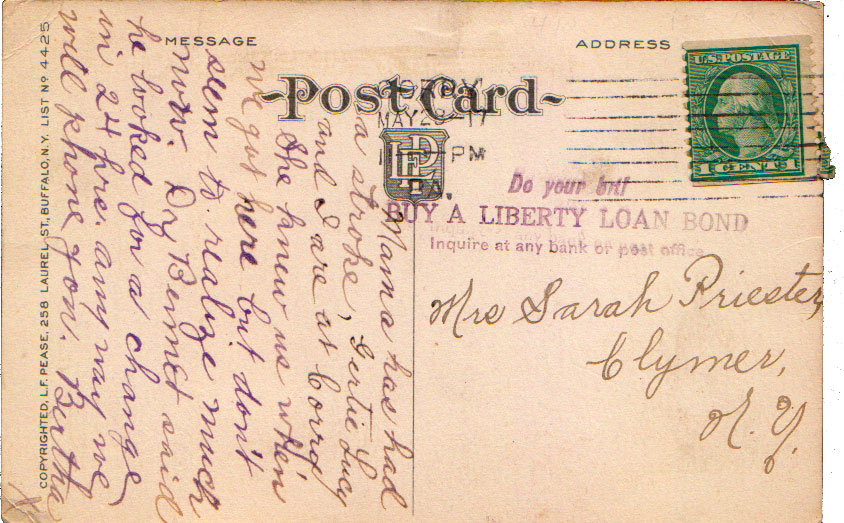 MESSAGE
ADDRESS
Post Card
LFP
U.S. POSTAGE
1 CENT 1
MAY 2 -17
PM
PA.
Do your bit!
BUY A LIBERTY LOAN BOND
Inquire at any bank or post office
Mama has had
a stroke, Gertie Lucy
and I are at
She knew us when
we got here but don't
seem to realize much
now. Dr said
he looked for a change
in 24 hrs. any way we
will phone you. Bertha
X
Mrs Sarah Priester,
Clymer,
N.Y.
COPYRIGHTED, L.F. PEASE, 258 LAUREL ST., BUFFALO, N.Y. LIST Nº 4425